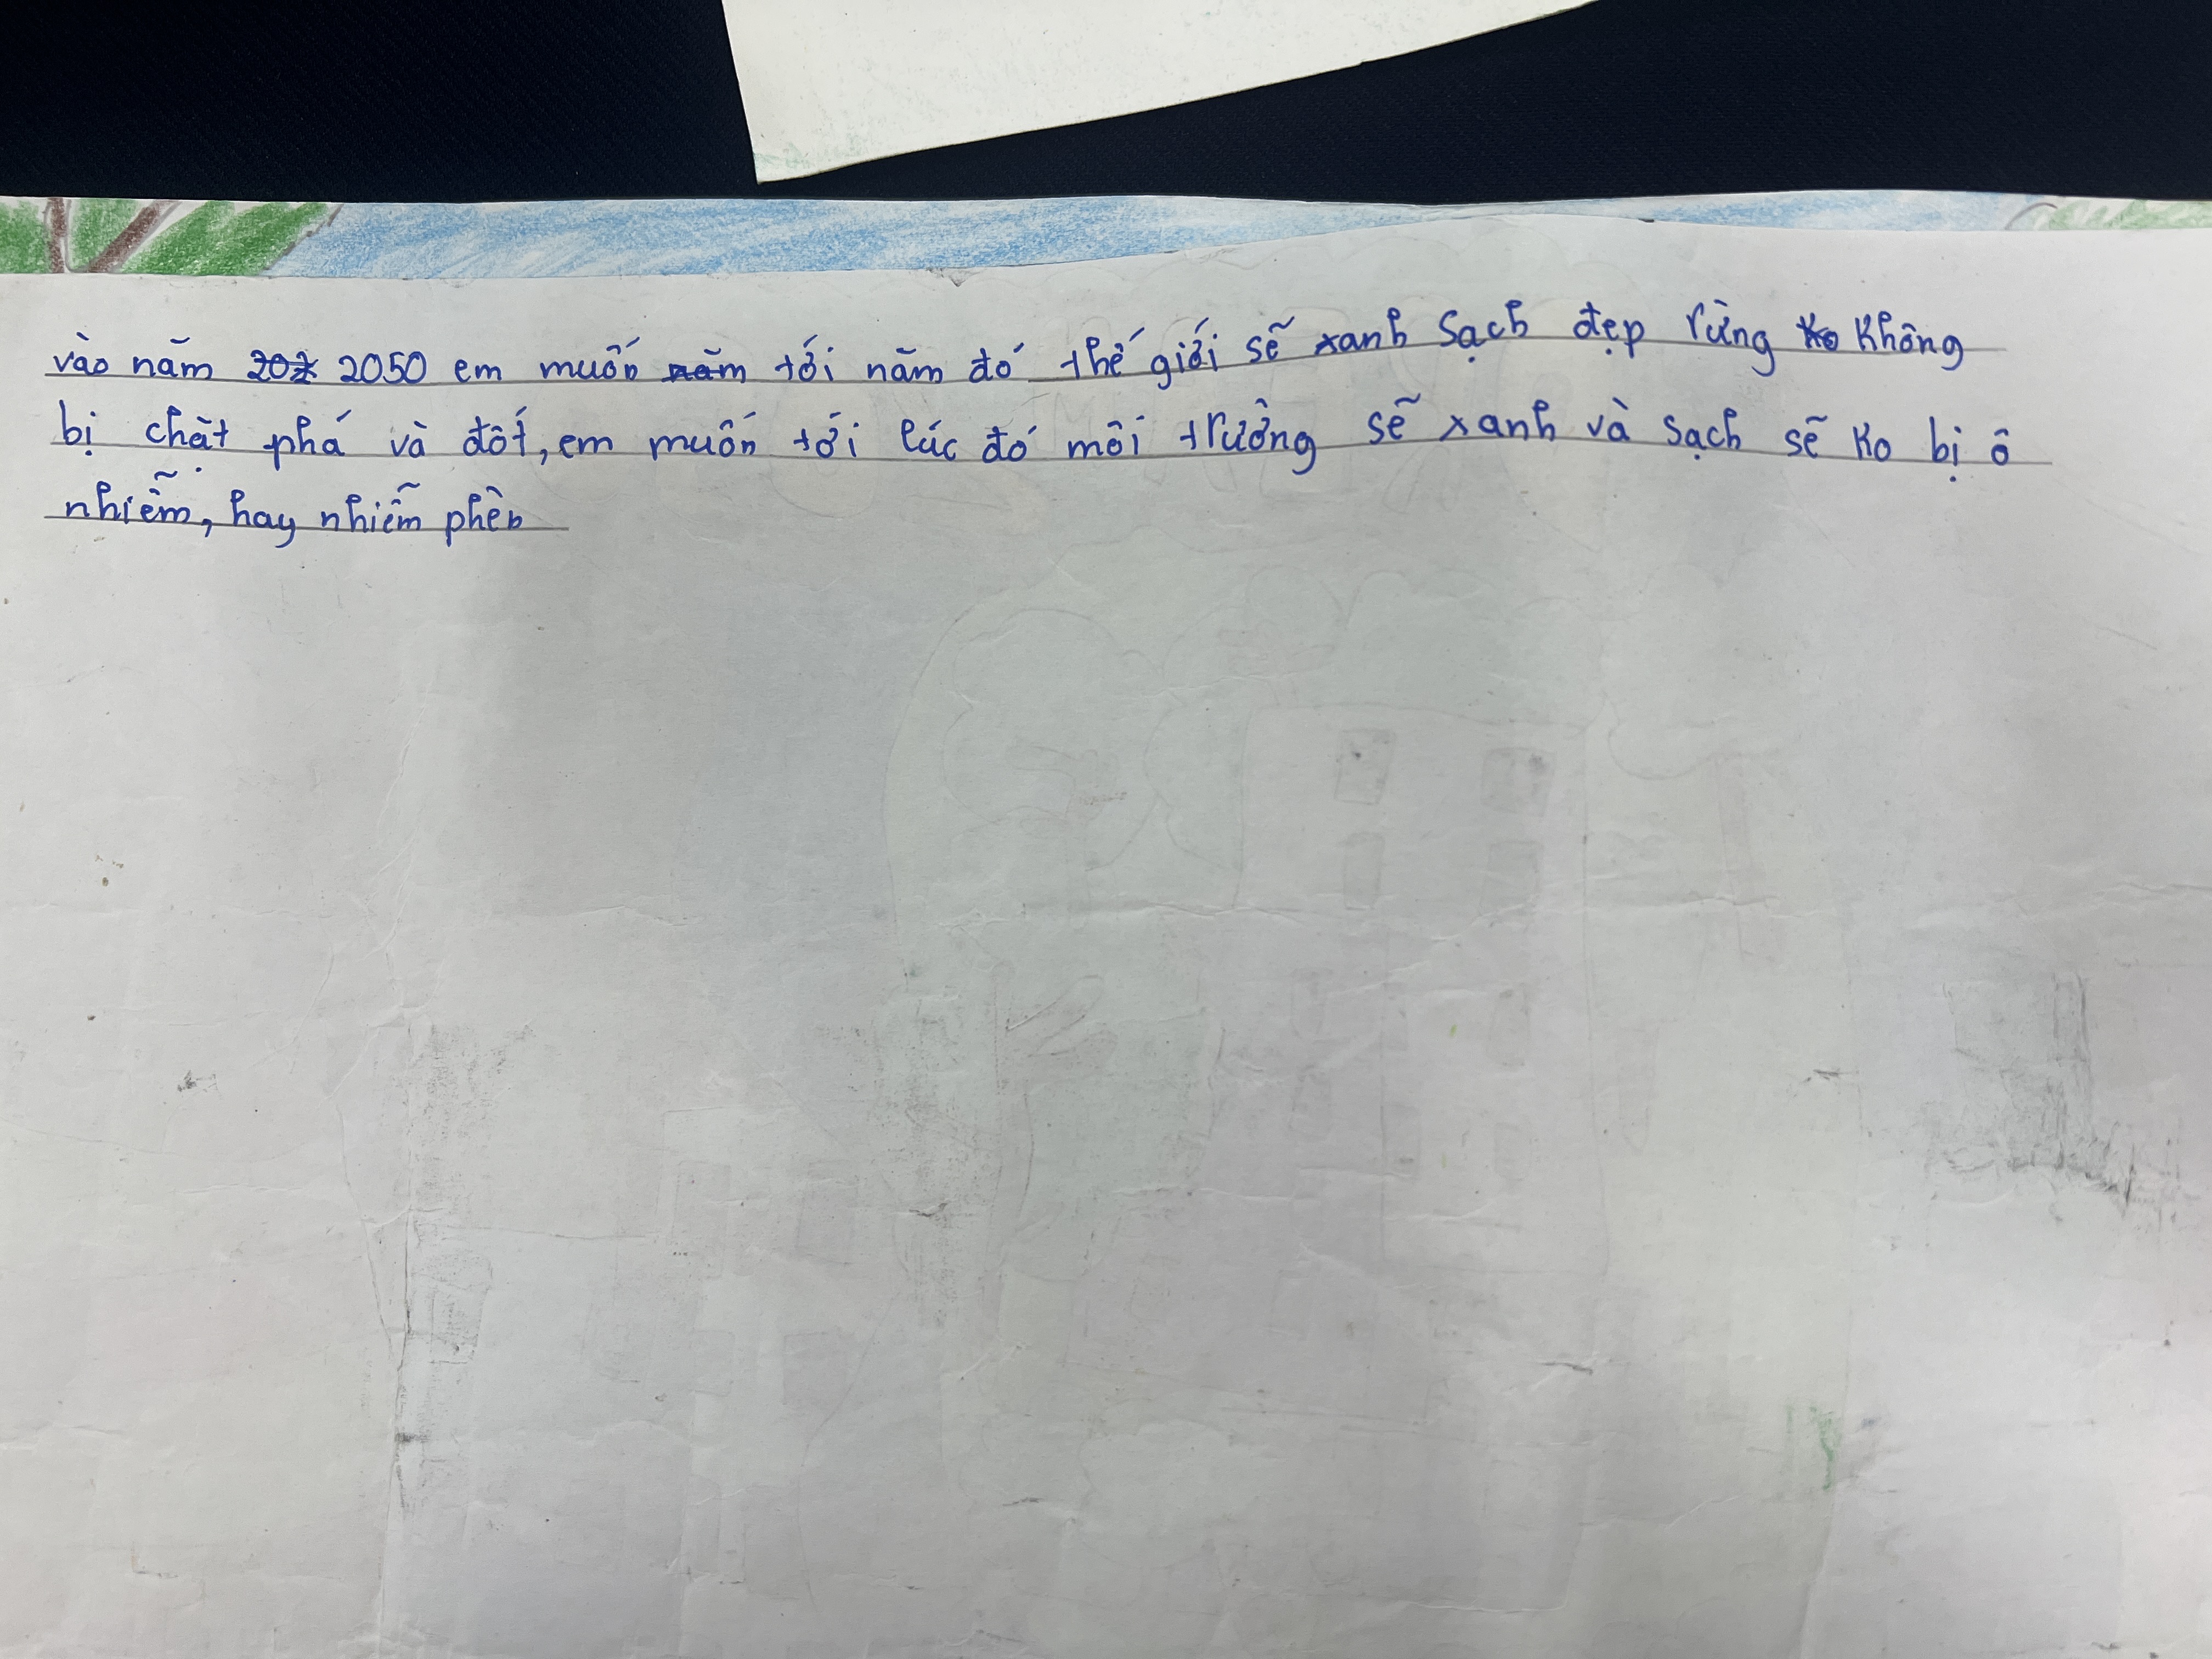 vào năm 202 2050 em muốn năm tới năm đó thế giới sẽ xanh sạch đẹp rừng ko không
bị chặt phá và đốt, em muốn tới lúc đó môi trường sẽ xanh và sạch sẽ ko bị ô
nhiễm, hay nhiễm phèn